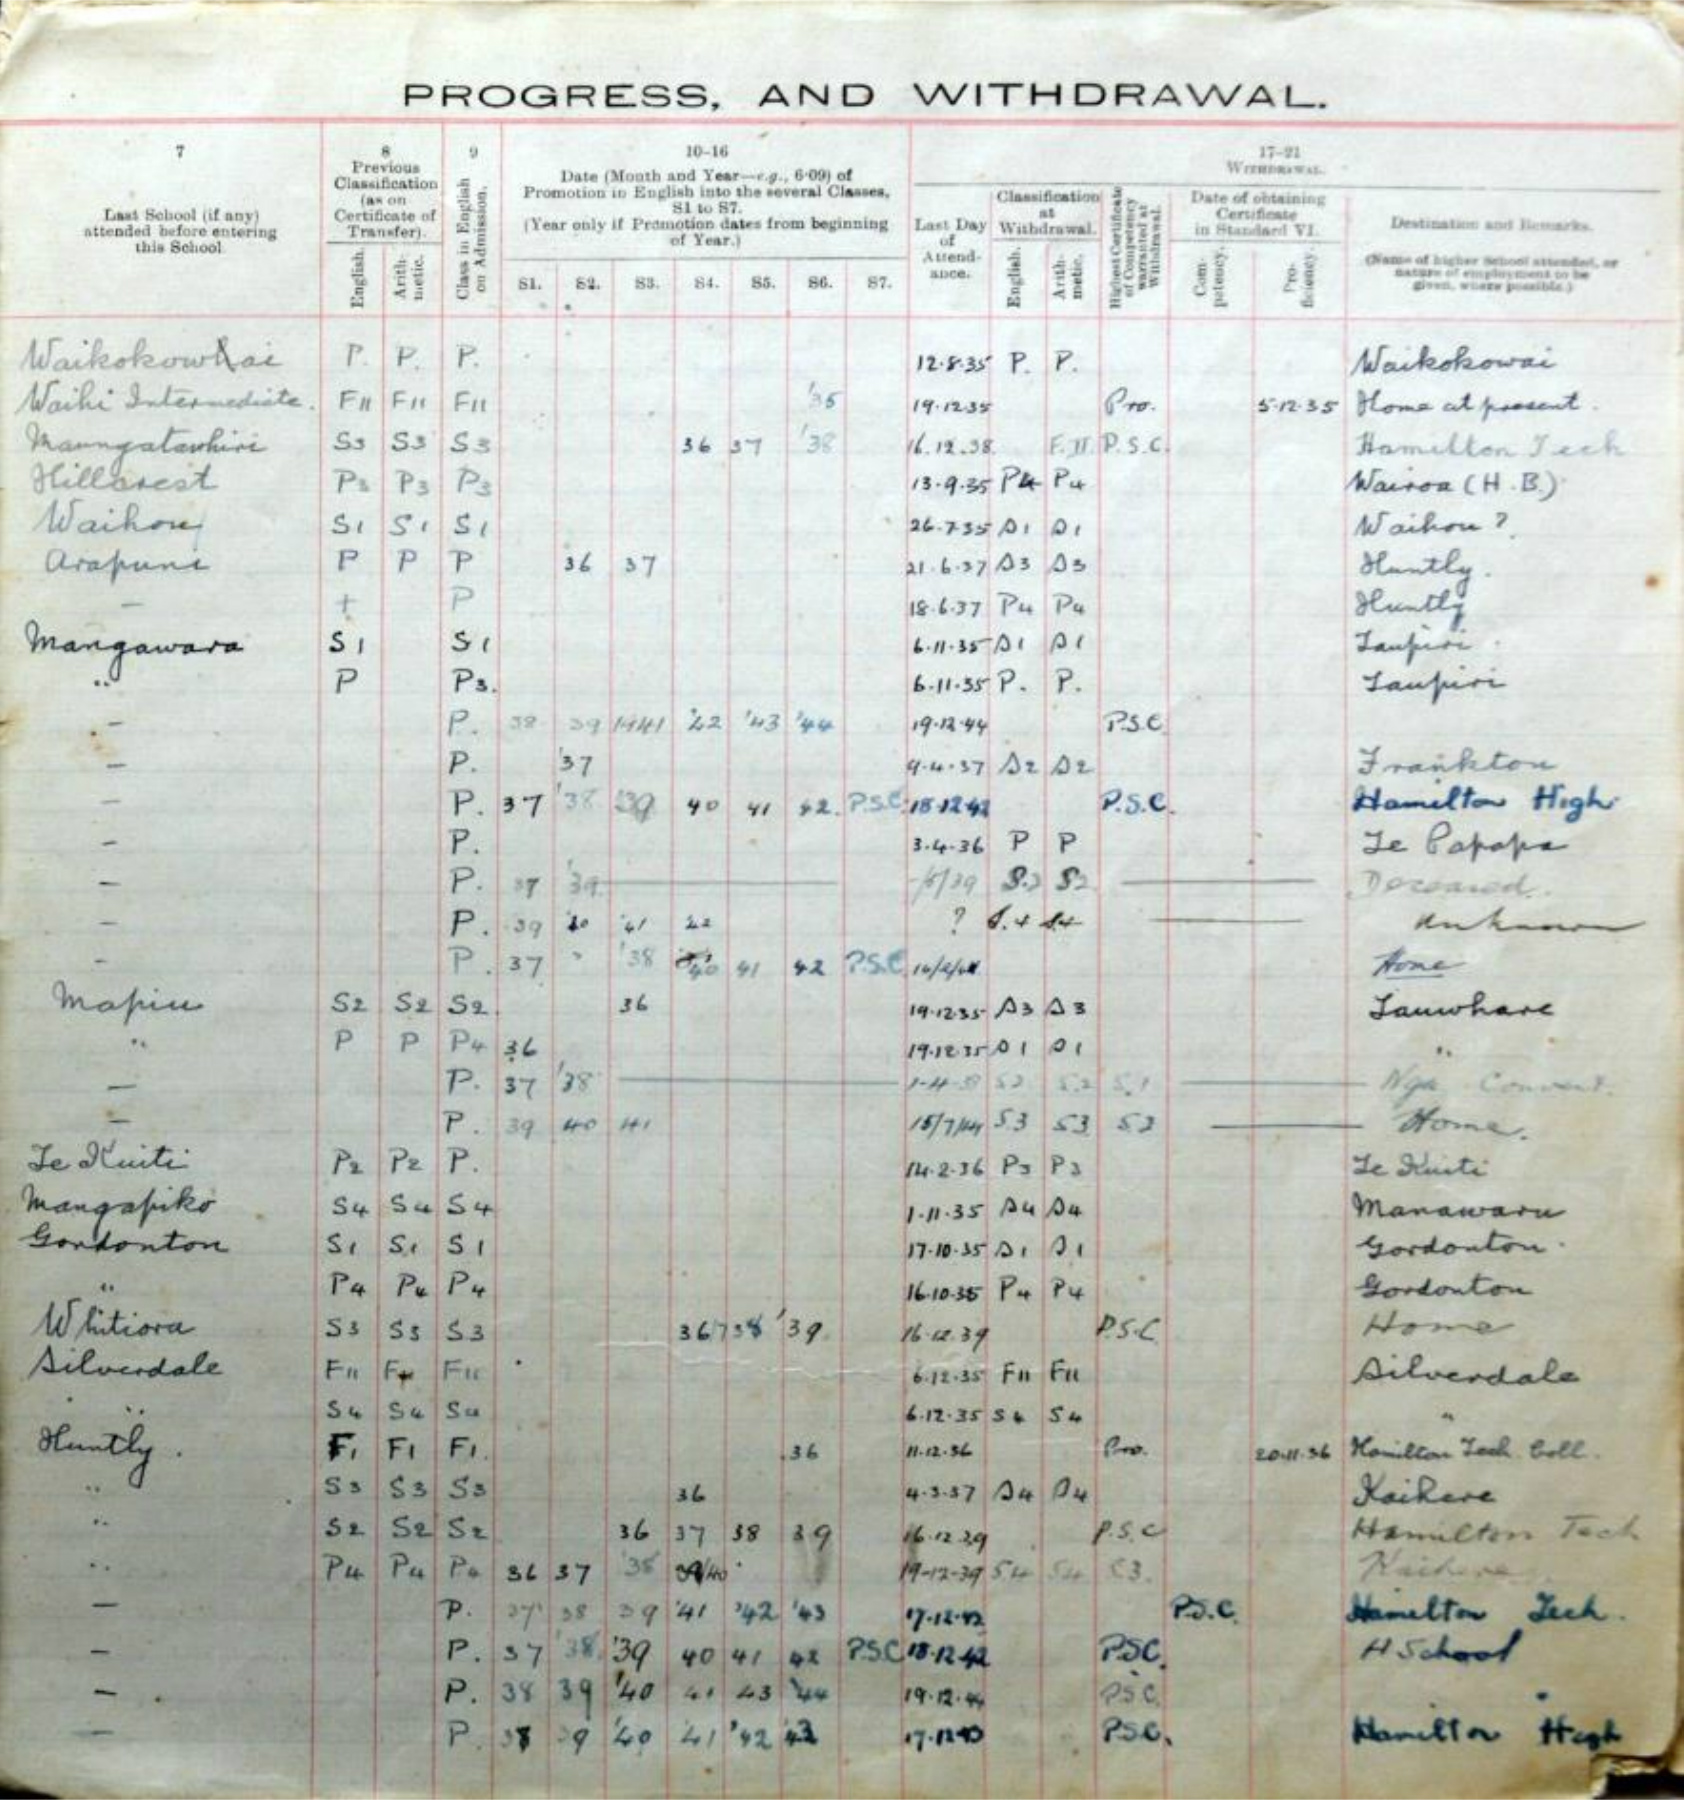 PROGRESS, AND WITHDRAWAL.
7 8 9 10-16 17-21
Last School (if any) attended before entering this School.
Previous Classification (as on Certificate of Transfer).
English. Arithmetic.
Class in English on Admission.
Date (Month and Year—e.g., 6·09) of Promotion in English into the several Classes, S1 to S7.
(Year only if Promotion dates from beginning of Year.)
S1. S2. S3. S4. S5. S6. S7.
WITHDRAWAL.
Last Day of Attendance.
Classification at Withdrawal.
English. Arithmetic.
Highest Certificate of Competency warranted at Withdrawal.
Date of obtaining Certificate in Standard VI.
Competency. Proficiency.
Destination and Remarks.
(Name of higher School attended, or nature of employment to be given, where possible.)
Waikokowhai P. P. P. 12·8·35 P. P. Waikokowai
Waihi Intermediate. F11 F11 F11 '35 19·12·35 Pro. 5·12·35 Home at present.
Maungatawhiri S3 S3 S3 36 37 '38 16.12.38 F.II P.S.C. Hamilton Tech
Hillcrest P3 P3 P3 13·9·35 P4 P4 Wairoa (H.B.)
Waihou S1 S1 S1 26·7·35 S1 S1 Waihou ?
Arapuni P P P 36 37 21·6·37 S3 S3 Huntly.
— + P 18·6·37 P4 P4 Huntly
Mangawara S1 S1 6·11·35 S1 S1 Taupiri
" P P3. 6·11·35 P. P. Taupiri
— P. 38 39 1941 '42 '43 '44 19·12·44 P.S.C.
— P. '37 9·4·37 S2 S2 Frankton
— P. 37 '38 '39 40 41 42. P.S.C. 18·12·42 P.S.C. Hamilton High
— P. 3·4·36 P P Te Papapa
— P. 37 '39 S.2 S2 Deceased.
— P. 39 40 '41 42 ? S.4 S4 Unknown
— P. 37 " '38 40 41 42 P.S.C Home
Mapiu S2 S2 S2. 36 19·12·35 S3 S3 Tauwhare
" P P P4 36 19·12·35 S1 S1 "
— P. 37 '38 1-4-38 S2 S.2 S.1 Nga Convent.
— P. 39 40 41 15/7/41 S3 S3 S2 Home.
Te Kuiti P2 P2 P. 14·2·36 P3 P3 Te Kuiti
Mangapiko S4 S4 S4 1·11·35 S4 S4 Manawaru
Gordonton S1 S1 S1 17·10·35 S1 S1 Gordonton.
" P4 P4 P4 16·10·35 P4 P4 Gordonton
Whitiora S3 S3 S3 36 '39 16·12·39 P.S.C Home
Silverdale F11 F11 F11 6·12·35 F11 F11 Silverdale
" S4 S4 S4 6·12·35 S4 S4 "
Huntly. F1 F1 F1. 36 11·12·36 Pro. 20·11·36 Hamilton Tech. Coll.
" S3 S3 S3 36 4·3·37 S4 S4 Kaihere
" S2 S2 S2 36 37 38 39 16·12·39 P.S.C Hamilton Tech
" P4 P4 P4 36 37 '38 39/40 19-12-39 S4 S4 S3. Kaihere
— P. 37 38 39 '41 '42 '43 P.S.C. Hamilton Tech.
— P. 37 '38 '39 40 41 42 P.S.C 18·12·42 P.S.C. H School
— P. 38 39 '40 41 43 '44 19·12·44 P.S.C.
— P. 38 39 '40 '41 '42 43 17·12·43 P.S.C. Hamilton High